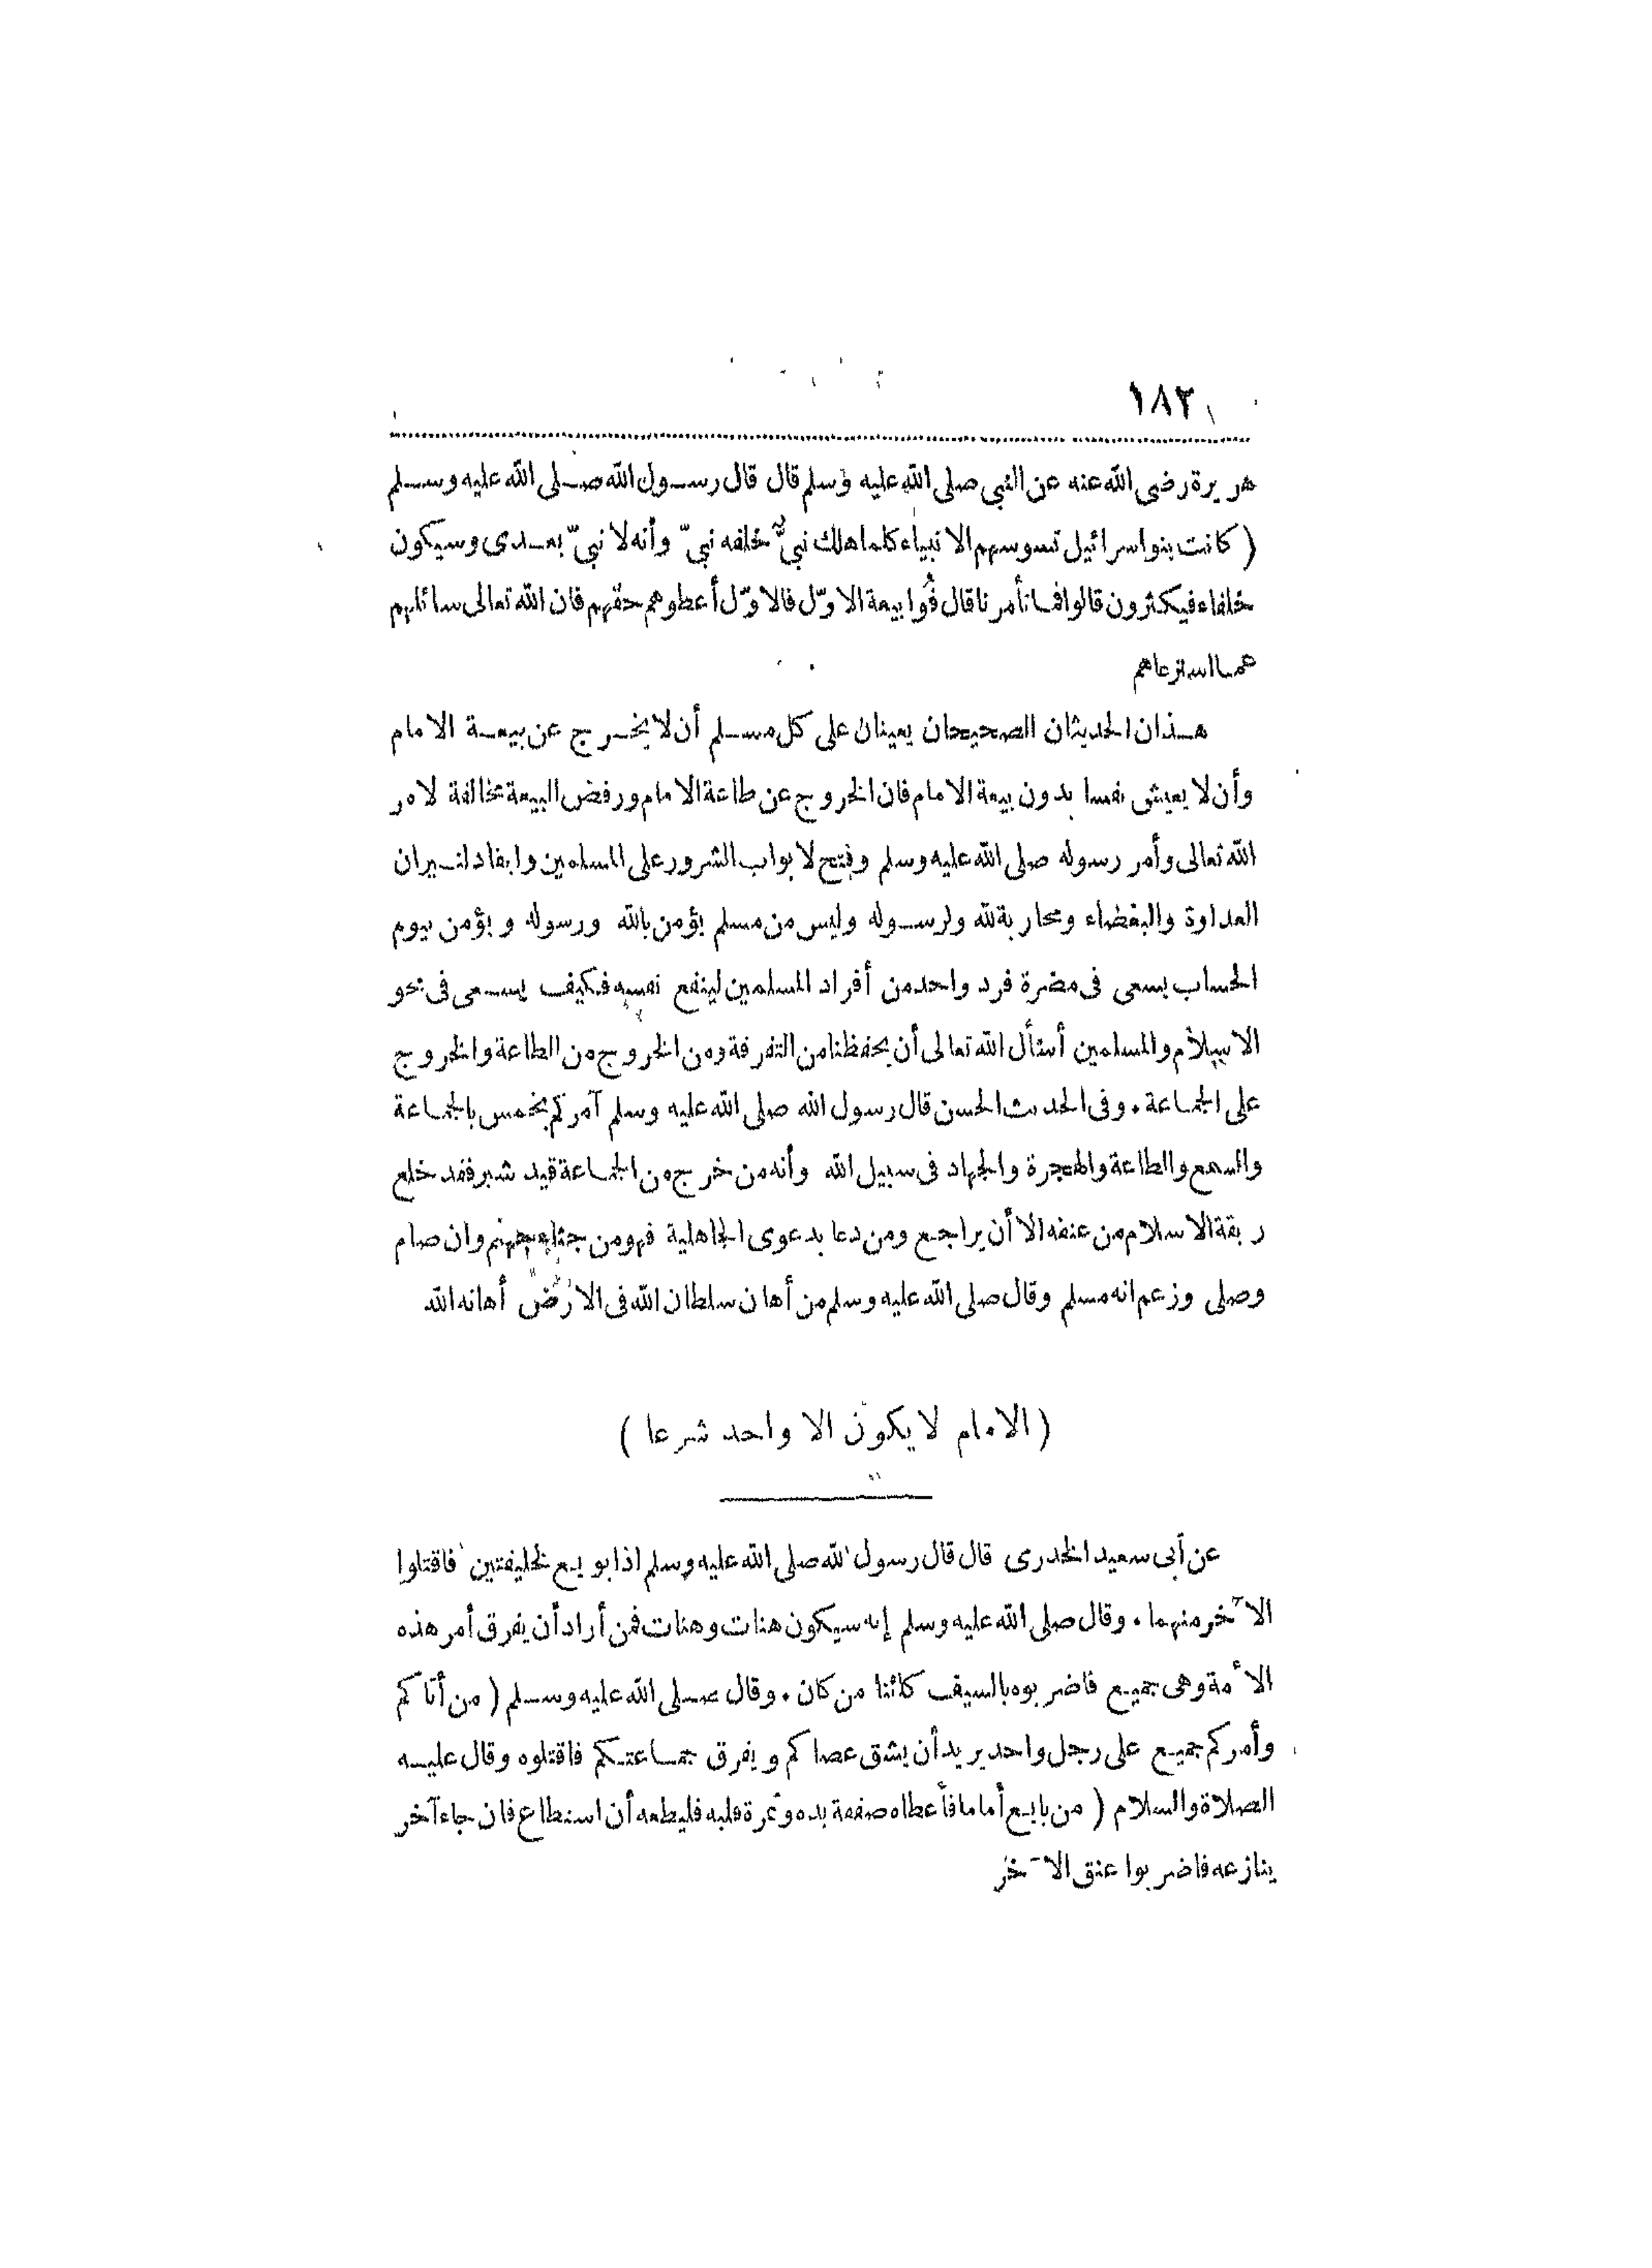 ١٨٢
هريرة رضى الله عنه عن النبى صلى الله عليه وسلم قال قال رسول الله صلى الله عليه وسلم
( كانت بنو اسرائيل تسوسهم الانبياء كلما هلك نبىّ خلفه نبىّ وأنه لا نبىّ بعدى وسيكون
خلفاء فيكثرون قالوا فما تأمرنا قال فُوا بيعة الاوّل فالاوّل أعطوهم حقهم فان الله تعالى سائلهم
عما استرعاهم
هذان الحديثان الصحيحان يعينان على كل مسلم أن لا يخرج عن بيعة الامام
وأن لا يعيش نفسا بدون بيعة الامام فان الخروج عن طاعة الامام ورفض البيعة مخالفة لامر
الله تعالى وأمر رسوله صلى الله عليه وسلم وفتح لابواب الشرور على المسلمين وايقاد لنيران
العداوة والبغضاء ومحاربة لله ولرسوله وليس من مسلم يؤمن بالله ورسوله ويؤمن بيوم
الحساب يسعى فى مضرة فرد واحد من أفراد المسلمين لينفع نفسه فكيف يسعى فى محو
الاسلام والمسلمين أسأل الله تعالى أن يحفظنا من التفرقة ومن الخروج من الطاعة والخروج
على الجماعة . وفى الحديث الحسن قال رسول الله صلى الله عليه وسلم آمركم بخمس بالجماعة
والسمع والطاعة والهجرة والجهاد فى سبيل الله وأنه من خرج من الجماعة قيد شبر فقد خلع
ربقة الاسلام من عنقه الا أن يراجع ومن دعا بدعوى الجاهلية فهو من جثاء جهنم وان صام
وصلى وزعم انه مسلم وقال صلى الله عليه وسلم من أهان سلطان الله فى الارض أهانه الله
( الامام لا يكون الا واحد شرعا )
عن أبى سعيد الخدرى قال قال رسول الله صلى الله عليه وسلم اذا بويع لخليفتين فاقتلوا
الآخر منهما . وقال صلى الله عليه وسلم إنه سيكون هنات وهنات فمن أراد أن يفرق أمر هذه
الأمة وهى جميع فاضربوه بالسيف كائنا من كان . وقال صلى الله عليه وسلم ( من أتاكم
وأمركم جميع على رجل واحد يريد أن يشق عصاكم ويفرق جماعتكم فاقتلوه وقال عليه
الصلاة والسلام ( من بايع أماما فأعطاه صفقة يده وثمرة قلبه فليطعه أن استطاع فان جاء آخر
ينازعه فاضربوا عنق الآخر